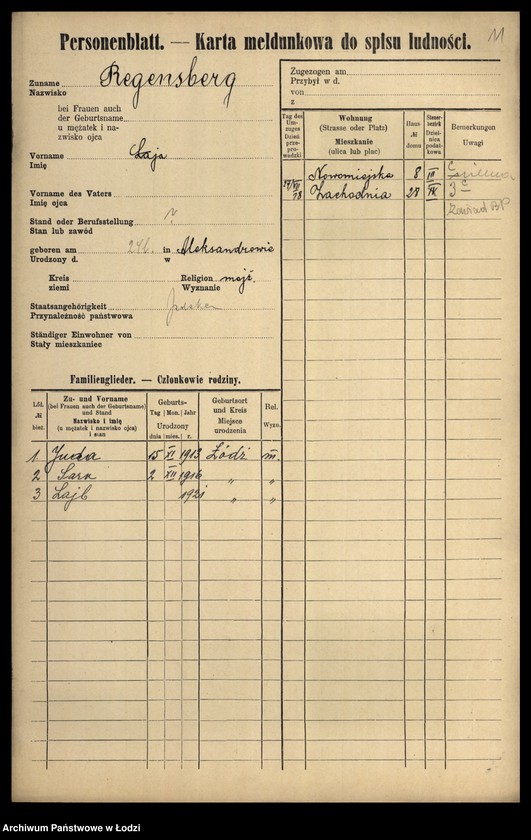 11
Personenblatt. — Karta meldunkowa do spisu ludności.
Zuname Regensberg
Nazwisko
bei Frauen auch
der Geburtsname
u mężatek i na-
zwisko ojca
Vorname Łaja
Imię
Vorname des Vaters
Imię ojca
Stand oder Berufsstellung
Stan lub zawód
geboren am 24 l. in Aleksandrowie
Urodzony d. w
Kreis Religion mojż.
ziemi Wyznanie
Staatsangehörigkeit
Przynależność państwowa
Ständiger Einwohner von
Stały mieszkaniec
Zugezogen am
Przybył w d.
von
z
Tag des Um-zuges Dzień prze-pro-wadzki
Wohnung (Strasse oder Platz) Mieszkanie (ulica lub plac)
Haus № domu
Steuer-bezirk Dziel-nica podat-kowa
Bemerkungen Uwagi
Nowomiejska 8 III
17/VII 18 Zachodnia 28 IX 3 c
Familienglieder. — Członkowie rodziny.
Lfd. № bież.
Zu- und Vorname (bei Frauen auch der Geburtsname) und Stand Nazwisko i imię (u mężatek i nazwisko ojca) i stan
Geburts- Tag Mon. Jahr Urodzony dnia mies. r.
Geburtsort und Kreis Miejsce urodzenia
Rel. Wyzn.
1 Juda 15 XI 1913 Łódź m.
2 Sara 2 XII 1916 " "
3 Lajb 1921 " "
Archiwum Państwowe w Łodzi